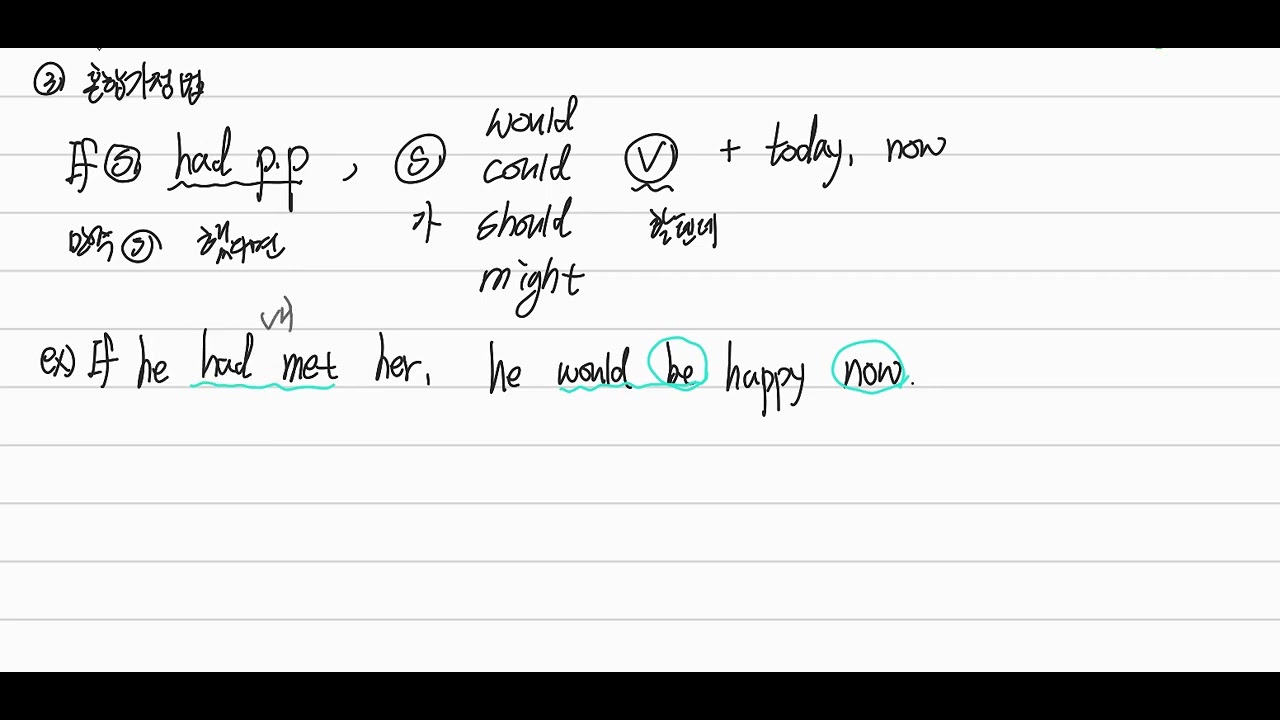 ③ 혼합가정법
If Ⓢ had p.p , Ⓢ would could should might Ⓥ + today, now
만약 Ⓢ 했다면 가 할텐데
ex) If he had met her, he would be happy now.